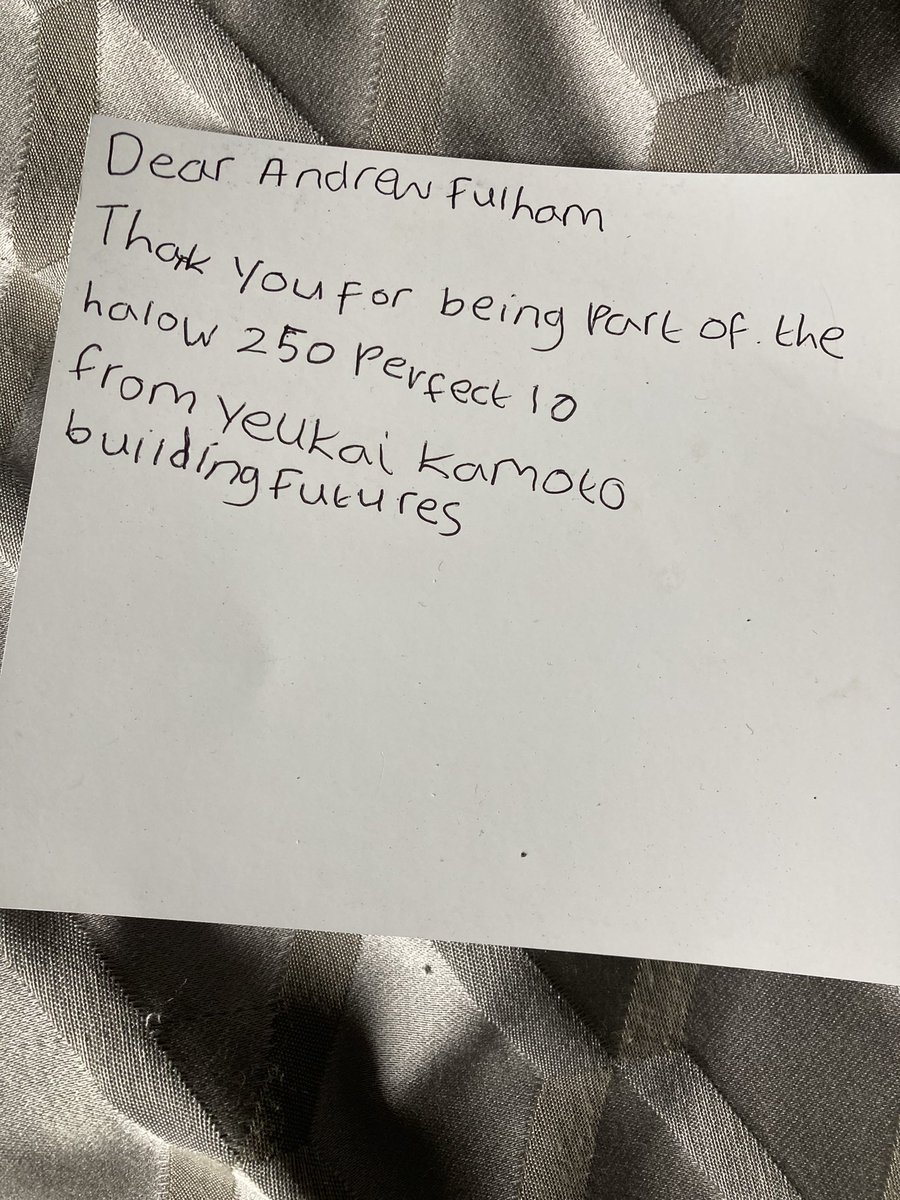 Dear Andrew Fulham
Thank you for being part of the
halow 250 perfect 10
from Yeukai Kamoto
building futures